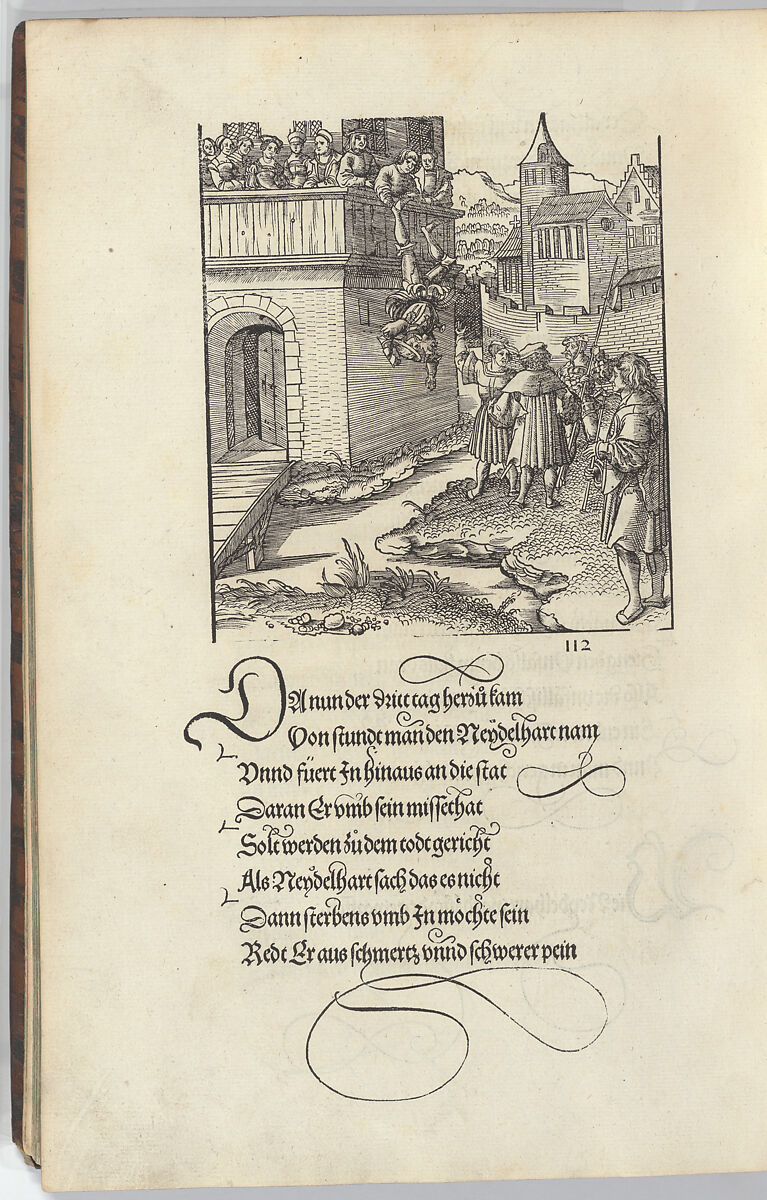 112
DA nun der dritt tag herzů kam
Von stundt man den Neÿdelhart nam
Vnnd füert In hinaus an die stat
Daran Er vmb sein missethat
Solt werden zů dem todt gericht
Als Neÿdelhart sach das es nicht
Dann sterbens vmb In möchte sein
Redt Er aus schmertz vnnd schwerer pein